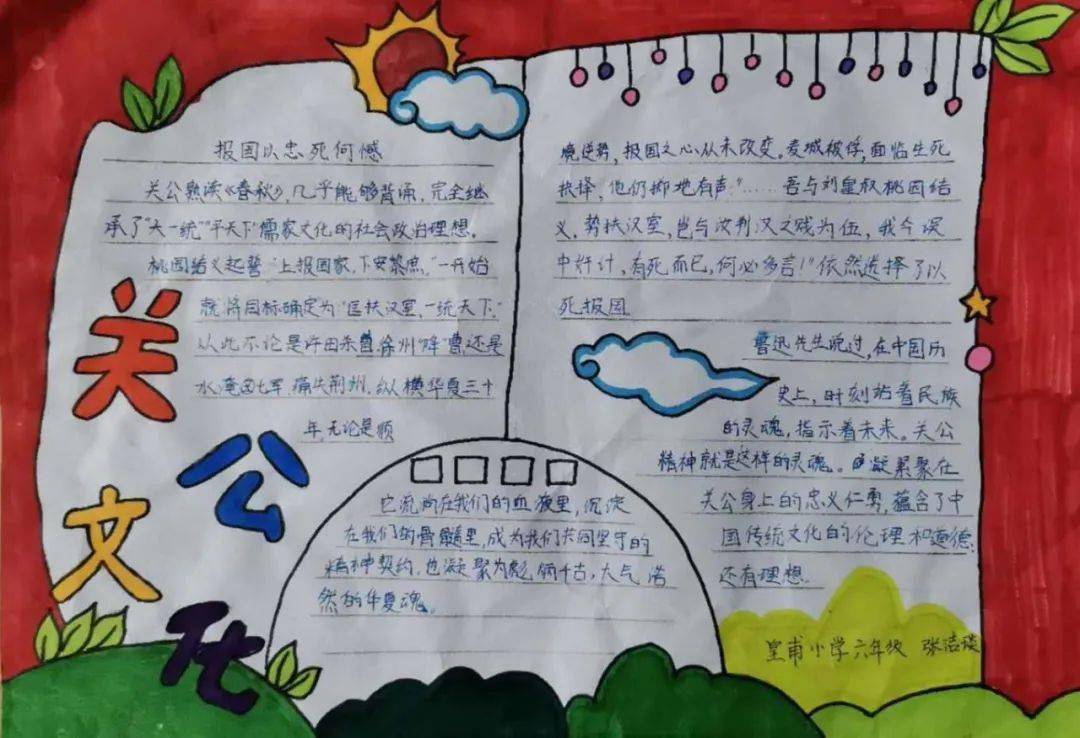 关公文化
报国以忠死何憾
关公熟读《春秋》,几乎能够背诵,完全继
承了"大一统""平天下"儒家文化的社会政治理想。
桃园结义起誓"上报国家,下安黎庶,"一开始
就将目标确定为"匡扶汉室,一统天下,"
从此不论是许田朱曹,徐州"降"曹,还是
水淹七军,痛失荆州,纵横华夏三十
年,无论是顺
境逆势,报国之心从未改变。麦城被俘,面临生死
抉择,他仍掷地有声"……吾与刘皇叔桃园结
义,势扶汉室,岂与汝判汉之贼为伍,我今误
中奸计,有死而已,何必多言!"依然选择了以
死报国
鲁迅先生说过,在中国历
史上,时刻站着民族
的灵魂,指示着未来。关公
精神就是这样的灵魂。凝聚在
关公身上的忠义仁勇,蕴含了中
国传统文化的伦理和道德,
还有理想.
它流淌在我们的血液里,沉淀
在我们的骨髓里,成为我们共同坚守的
精神契约,也凝聚为彪炳千古,大气浩
然的华夏魂。
皇甫小学六年级 张洁